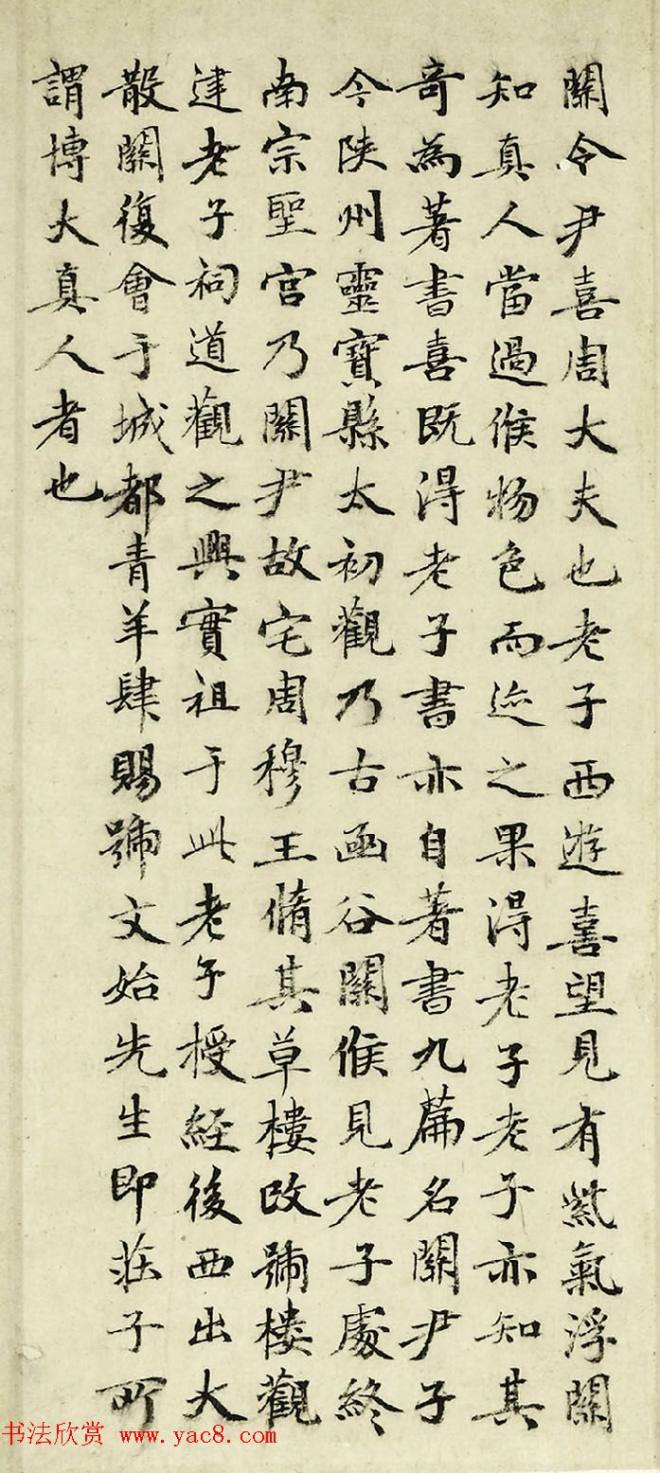 關令尹喜周大夫也老子西遊喜望見有紫氣浮關
知真人當過候物色而迹之果得老子老子亦知其
奇為著書喜既得老子書亦自著書九篇名關尹子
今陝州靈寶縣太初觀乃古函谷關候見老子處終
南宗聖宮乃關尹故宅周穆王脩其草樓改號樓觀
建老子祠道觀之興實祖于此老子授經後西出大
散關復會于城都青羊肆賜號文始先生即莊子所
謂博大真人者也
书法欣赏 www.yac8.com